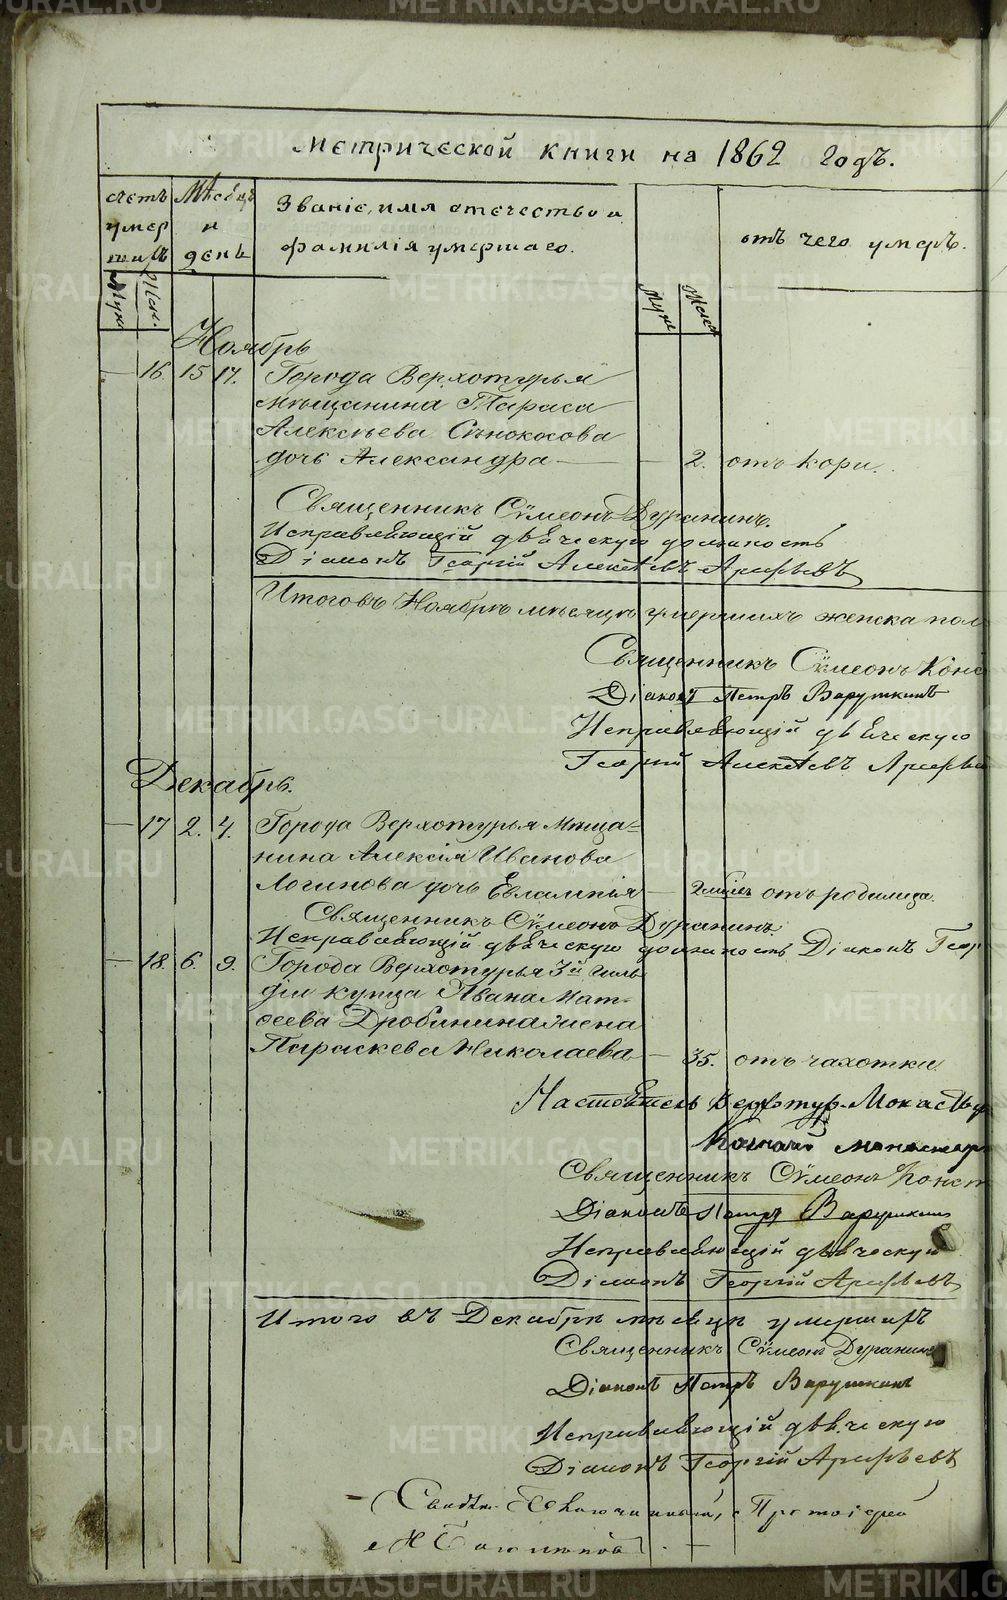 Метрической книги на 1862 годъ.
счетъ умер шихъ
Муж. Жен.
Мѣсяцъ и день
Званіе, имя отечество и
фамилія умершаго.
Муж. Женс.
отъ чего умеръ.
Ноябрь
— 16. 15 17. Города Верхотурья
мѣщанина Тараса
Алексѣева Сѣнокосова
дочь Александра — — 2. отъ кори.
Священникъ Сѵмеонъ Дуранинъ.
Исправляющій дьяческую должность
Діаконъ Георгій Алексѣевъ Арефьевъ
Итого въ Ноябрѣ мѣсяцѣ умершихъ женска пол
Священникъ Сѵмеонъ Конс
Діаконъ Петръ Варушкинъ
Исправляющій дьяческую
Георгій Алексѣевъ Арефье
Декабрь.
— 17 2. 4. Города Верхотурья Мѣща=
нина Алексія Иванова
Логинова дочь Евлампія — 2 мѣсяц отъ родимца.
Священникъ Сѵмеонъ Дуранинъ.
Исправляющій дьяческую должность Діаконъ Геор
— 18. 6. 9. Города Верхотурья 3й Гиль
діи купца Ивана Мат-
ѳеева Дробинина жена
Параскева Николаева — 35. отъ чахотки.
Настоятель Верхотур. Монастыр
Казначей монастыр
Священникъ Сѵмеонъ Конст
Діаконъ Петръ Варушкинъ
Исправляющій дьяческую
Діаконъ Георгій Арефьевъ
Итого въ Декабрѣ мѣсяцѣ умершихъ
Священникъ Сѵмеонъ Дуранинъ
Діаконъ Петръ Варушкинъ
Исправляющій дьяческую
Діаконъ Георгій Арефьевъ
Протоіерей
METRIKI.GASO-URAL.RU